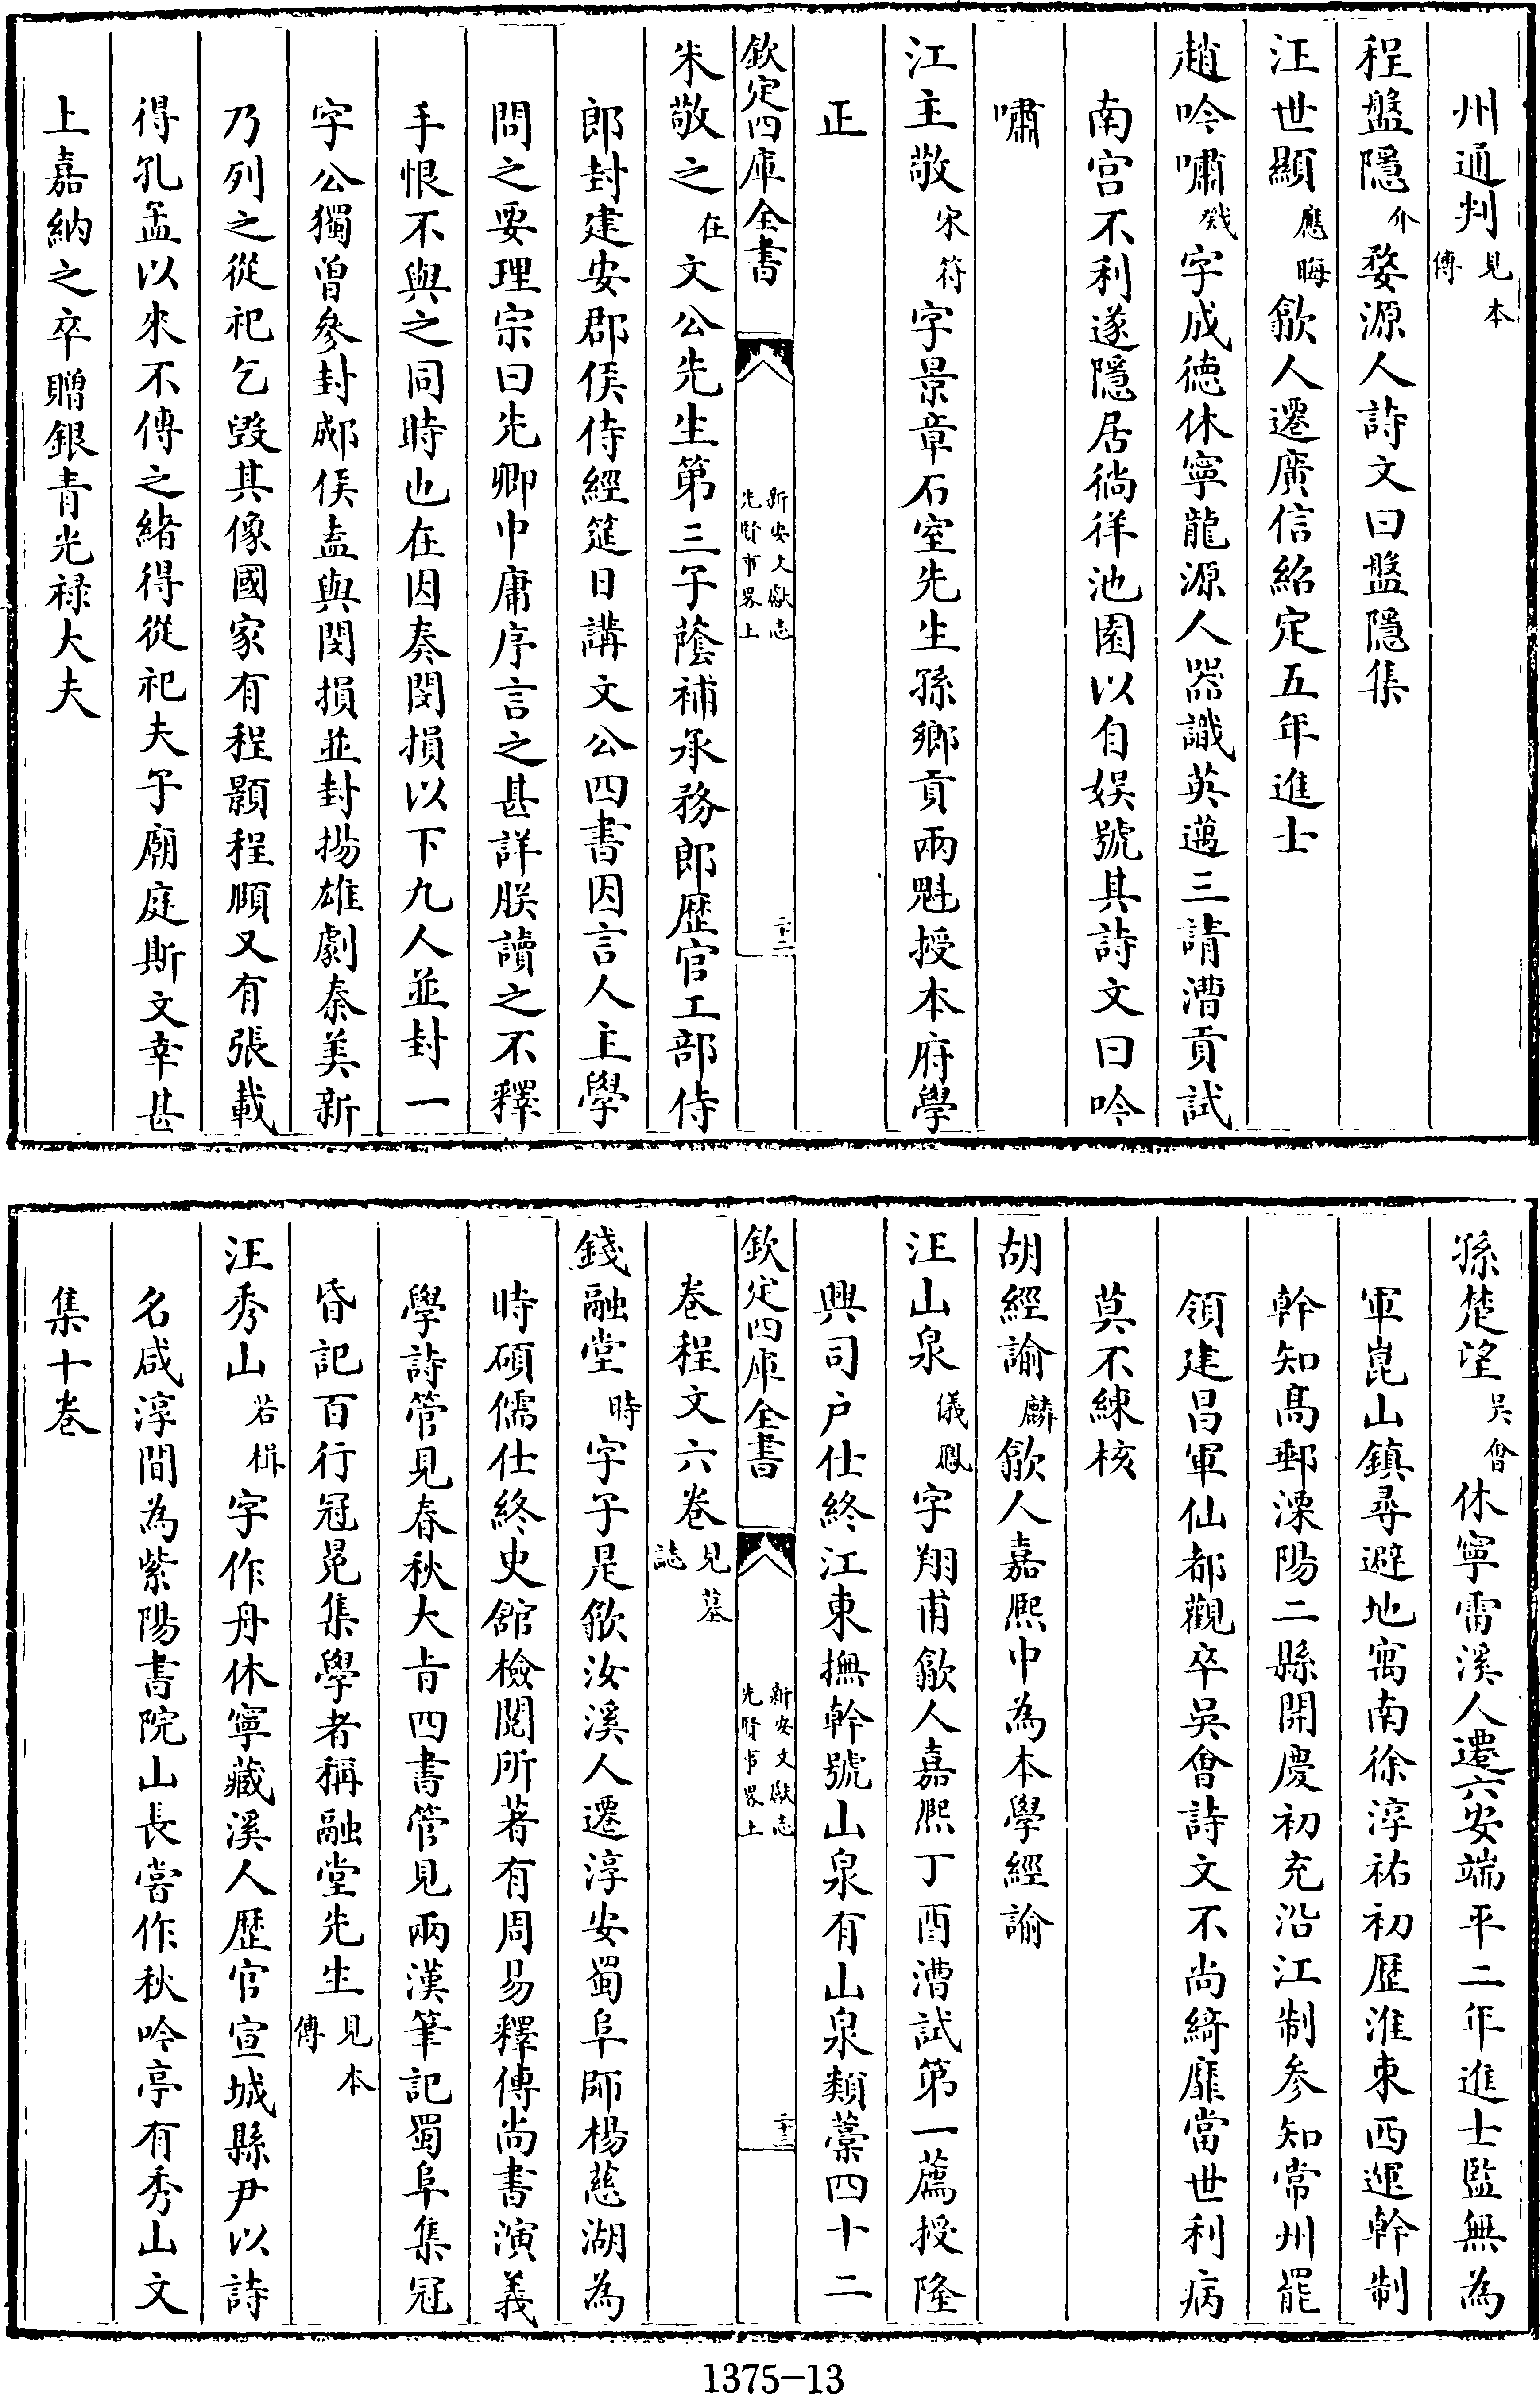 州通判見本傳
程盤隱介婺源人詩文曰盤隱集
汪世顯應晦歙人遷廣信紹定五年進士
趙吟嘯戣字成德休寧龍源人器識英邁三請漕貢試
南宮不利遂隱居徜徉池園以自娛號其詩文曰吟
嘯
江主敬宋符字景章石室先生孫鄉貢兩魁授本府學
正
欽定四庫全書
新安文獻志
先賢事畧上
二十二
朱敬之在文公先生第三子蔭補承務郎歷官工部侍
郎封建安郡侯侍經筵日講文公四書因言人主學
問之要理宗曰先卿中庸序言之甚詳朕讀之不釋
手恨不與之同時也在因奏閔損以下九人並封一
字公獨曾參封郕侯盍與閔損並封揚雄劇秦美新
乃列之從祀乞毀其像國家有程顥程頤又有張載
得孔孟以來不傳之緒得從祀夫子廟庭斯文幸甚
上嘉納之卒贈銀青光祿大夫
孫楚望吳會休寧霄溪人遷六安端平二年進士監無為
軍崑山鎮尋避地寓南徐淳祐初歷淮東西運幹制
幹知髙郵溧陽二縣開慶初充沿江制參知常州罷
領建昌軍仙都觀卒吳會詩文不尚綺靡當世利病
莫不練核
胡經諭麟歙人嘉熙中為本學經諭
汪山泉儀鳳字翔甫歙人嘉熙丁酉漕試第一薦授隆
興司户仕終江東撫幹號山泉有山泉類藁四十二
欽定四庫全書
新安文獻志
先賢事畧上
二十三
卷程文六卷見墓誌
錢融堂時字子是歙汝溪人遷淳安蜀阜師楊慈湖為
時碩儒仕終史館檢閱所著有周易釋傳尚書演義
學詩管見春秋大旨四書管見兩漢筆記蜀阜集冠
昏記百行冠冕集學者稱融堂先生見本傳
汪秀山若楫字作舟休寧藏溪人歷官宣城縣尹以詩
名咸淳間為紫陽書院山長嘗作秋吟亭有秀山文
集十卷
1375-13